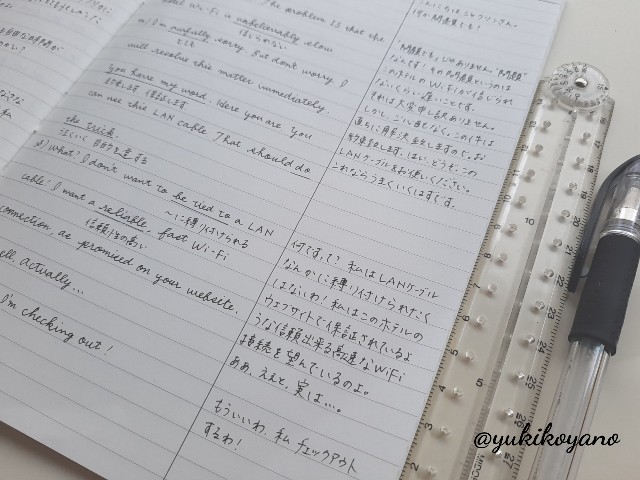 The problem is that the
hotel Wi-Fi is unbelievably slow
信じられない
I'm awfully sorry. But don't worry, I
とても
will resolve this matter immediately.
You have my word. Here you are. You
約束します 保証します
can use this LAN cable. That should do
the trick.
うまくいく 目的を達する
What? I don't want to be tied to a LAN
〜に縛り付けられる
cable! I want a reliable, fast Wi-Fi
信頼性の高い
connection, as promised on your website.
actually...
I'm checking out!
こんにちは
何か問題でも?
"問題でも"じゃありません "問題"
なんです! その問題というのは
このホテルのWiFiが信じられ
ないくらい遅いことです。
それは大変申し訳ありません。
しかし、ご心配なく。この件は
直ちに解決
約束します。はい、どうぞ。この
LANケーブルをお使いください。
これならうまくいくはずです。
何ですって? 私はLANケーブル
なんかに縛り付けられたく
はないわ! 私はこのホテルの
ウェブサイトで保証されているよ
うな信頼出来る高速なWiFi
接続を望んでいるのよ。
ああ、ええと、実は…。
もういいわ、私 チェックアウト
するわ!
@yukikoyano